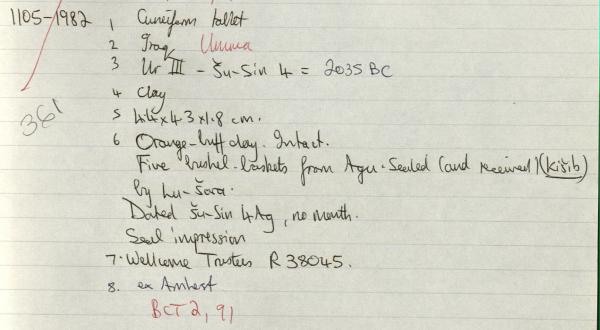 1105-1982 1 Cuneiform tablet
2 Iraq Umma
3 Ur III - Šu-Sin 4 = 2035 BC
4 Clay
361
5 4.4 x 4.3 x 1.8 cm.
6 Orange-buff clay. Intact.
Five bushel-baskets from Agu. Sealed (and received) (kišib)
by Lu-Šara.
Dated Šu-Sin 4 Ag, no month.
Seal impression
7. Wellcome Trustees R 38045.
8. ex Amherst
BCT 2, 91